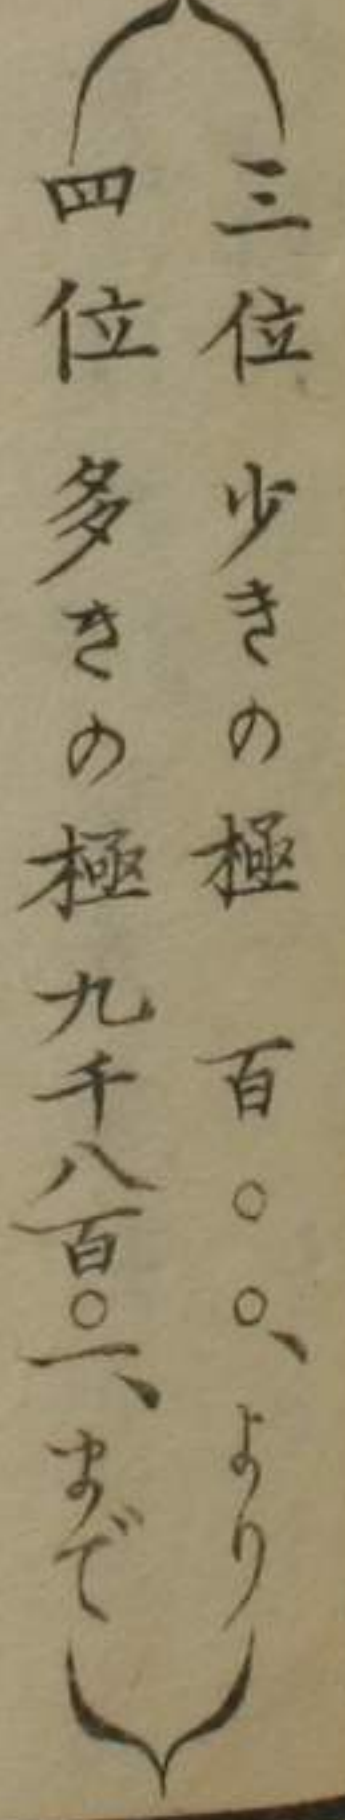 三位 少きの極 百〇〇、より
四位 多きの極 九千八百〇一、まで